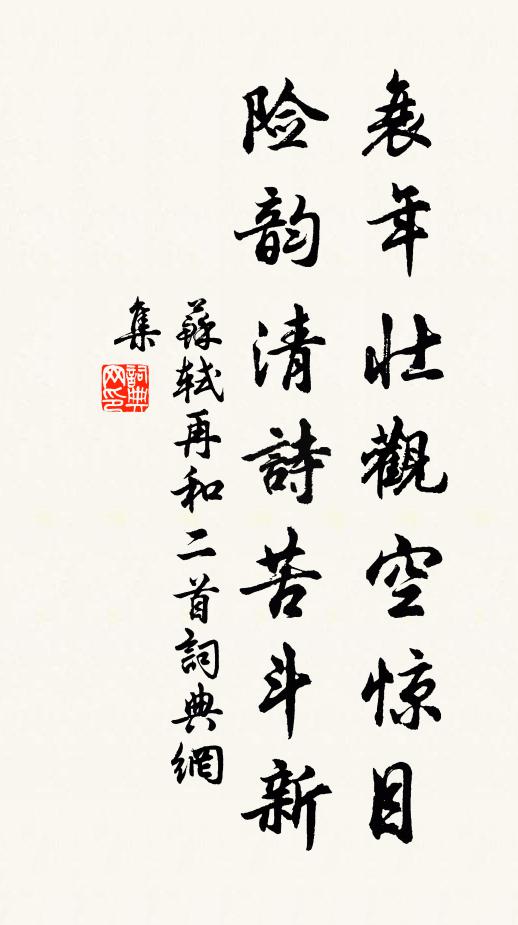 衰年壮觀空惊目
险韵清詩苦斗新
蘇軾再和二首詞典網
集
詞典
网印